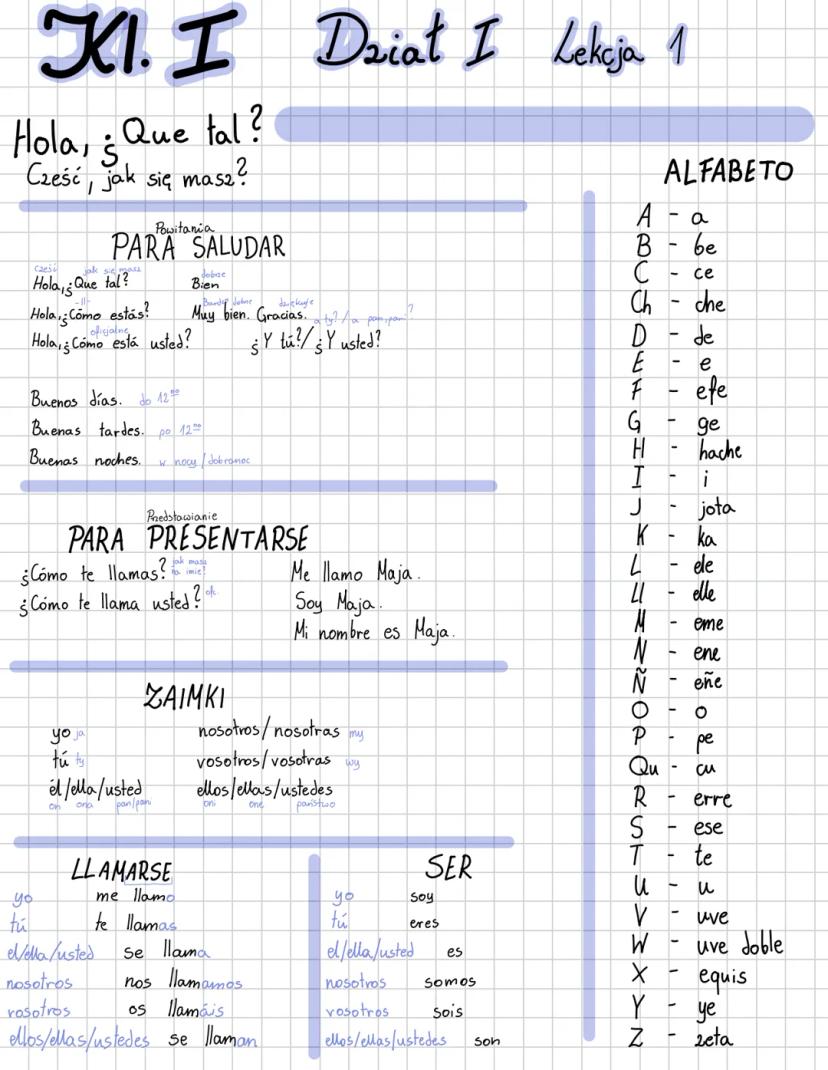 Kl. I Dział I Lekcja 1
Hola, ¿Que tal?
Cześć, jak się masz?
Powitania
PARA SALUDAR
cześć jak się masz dobrze
Hola, ¿Que tal? Bien
-||- Bardzo dobrze dziękuję
Hola, ¿Cómo estás? Muy bien. Gracias. a ty? / a pan, pani?
oficjalne
Hola, ¿Cómo está usted? ¿Y tú?/¿Y usted?
Buenos días. do 12⁰⁰
Buenas tardes. po 12⁰⁰
Buenas noches. w nocy / dobranoc
Przedstawianie
PARA PRESENTARSE
¿Cómo te llamas? jak masz na imię? Me llamo Maja.
¿Cómo te llama usted? ofc. Soy Maja.
Mi nombre es Maja.
ZAIMKI
yo ja nosotros/nosotras my
tú ty vosotros/vosotras wy
él/ella/usted ellos/ellas/ustedes
on ona pan/pani oni one państwo
LLAMARSE
yo me llamo
tú te llamas
el/ella/usted se llama
nosotros nos llamamos
vosotros os llamáis
ellos/ellas/ustedes se llaman
SER
yo soy
tú eres
el/ella/usted es
nosotros somos
vosotros sois
ellos/ellas/ustedes son
ALFABETO
A - a
B - be
C - ce
Ch - che
D - de
E - e
F - efe
G - ge
H - hache
I - i
J - jota
K - ka
L - ele
Ll - elle
M - eme
N - ene
Ñ - eñe
O - o
P - pe
Qu - cu
R - erre
S - ese
T - te
U - u
V - uve
W - uve doble
X - equis
Y - ye
Z - zeta